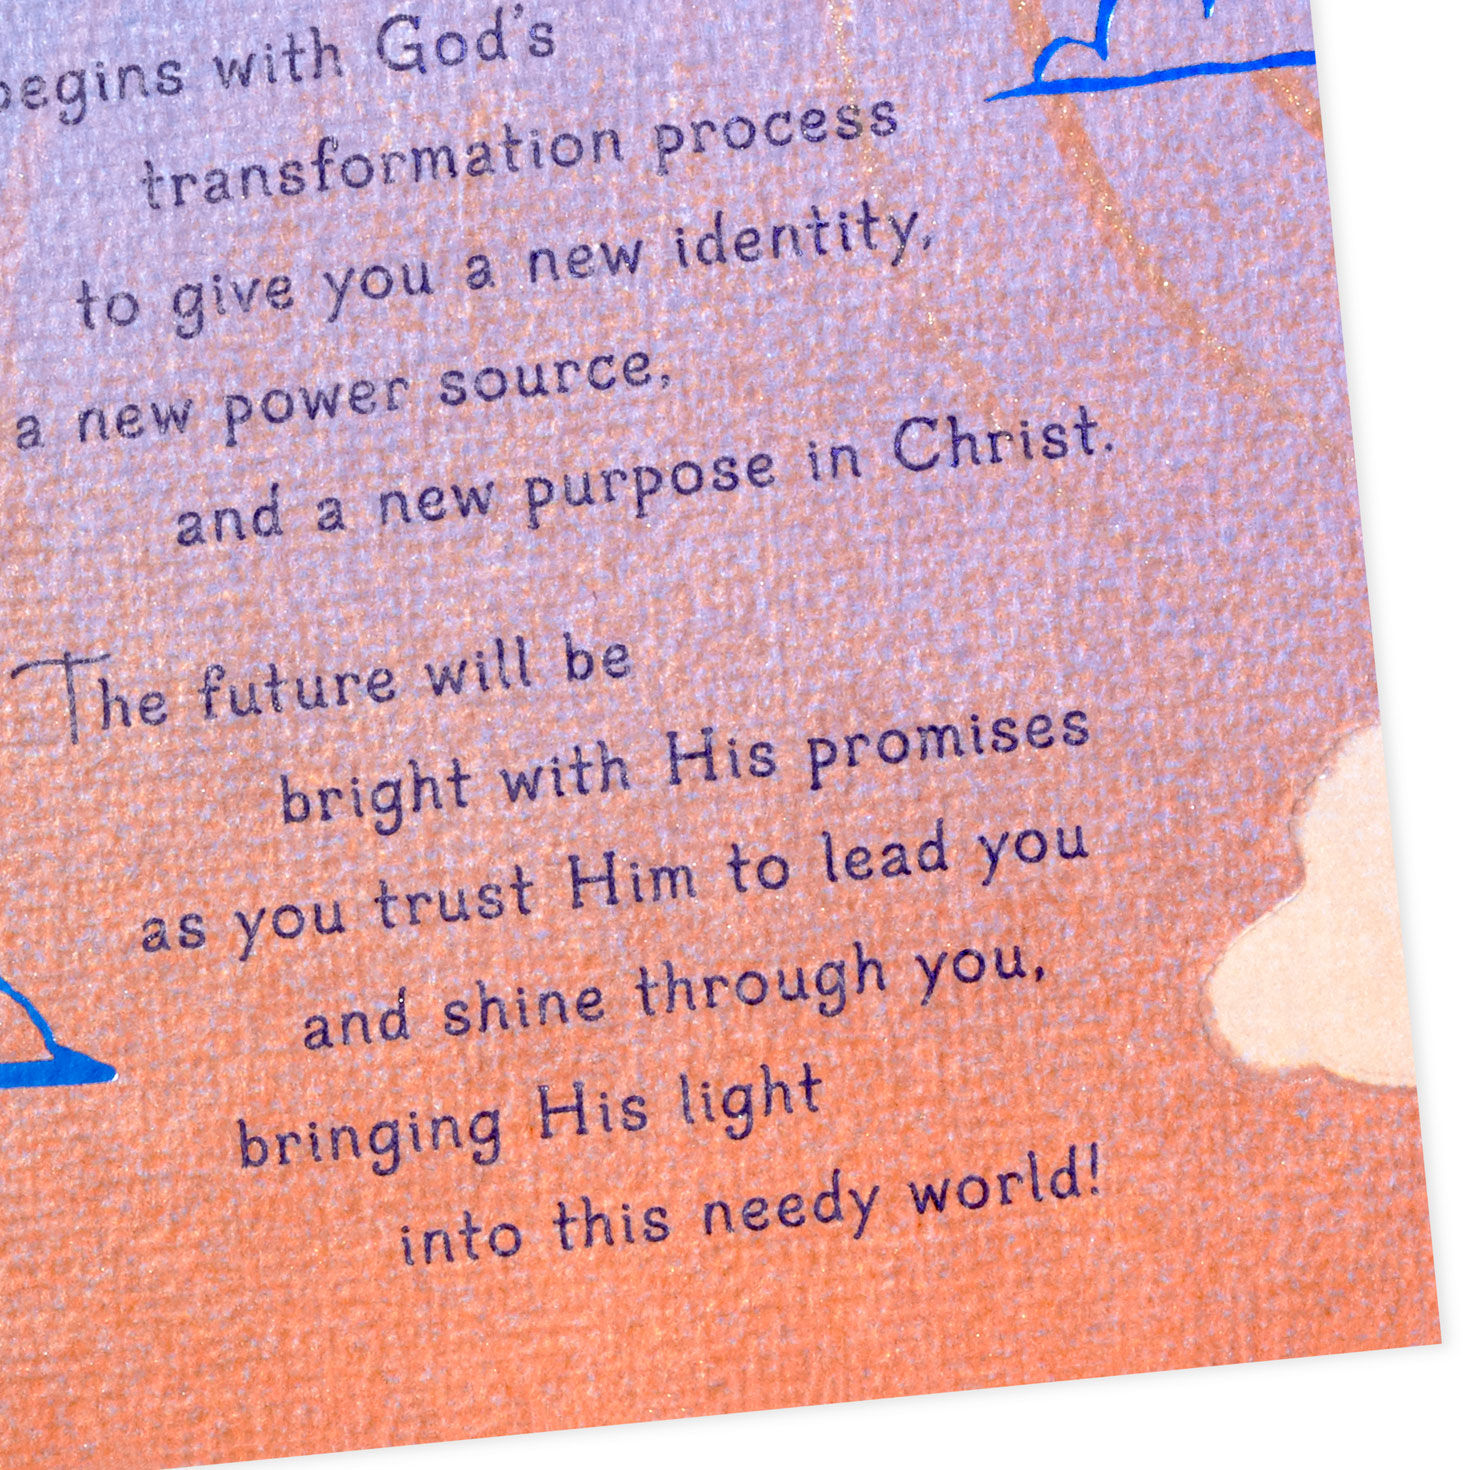 begins with God's
transformation process
to give you a new identity,
a new power source,
and a new purpose in Christ.
The future will be
bright with His promises
as you trust Him to lead you
and shine through you,
bringing His light
into this needy world!